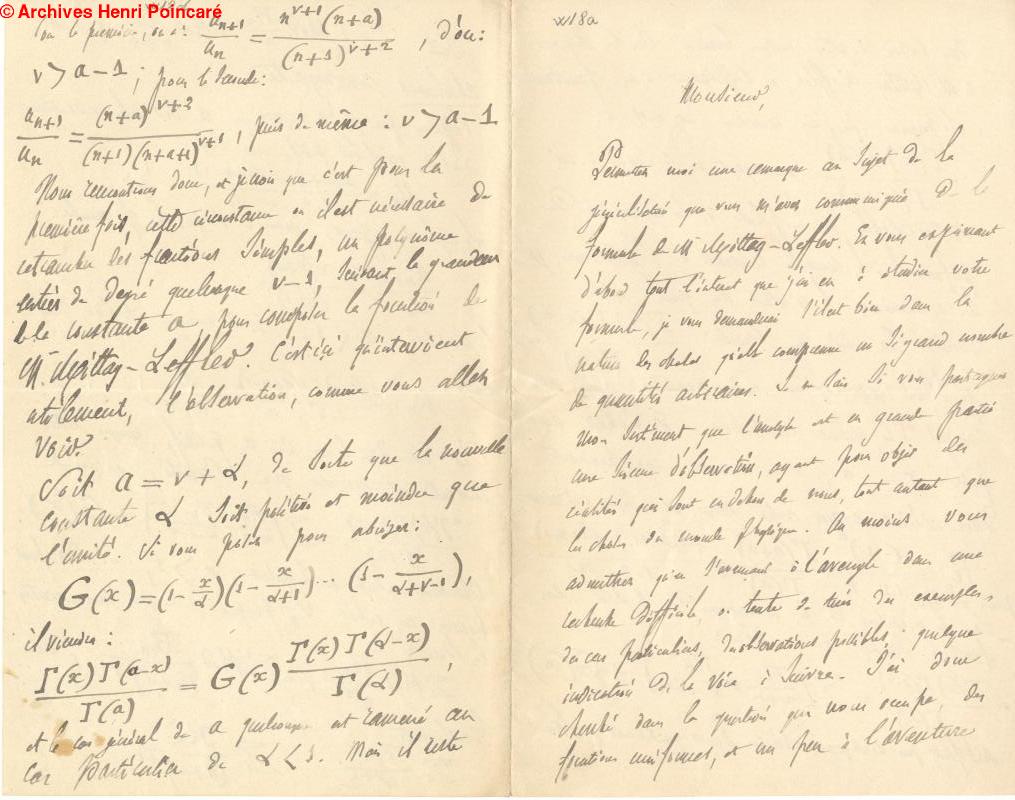 © Archives Henri Poincaré
a_{n+1}/a_n = n^{ν+1}(n+a)/(n+1)^{ν+2}, d'où:
ν > a-1; pour la seconde:
a_{n+1}/a_n = (n+a)^{ν+2}/(n+1)(n+a+1)^{ν+1}, puis de même: ν > a-1
Nous rencontrons donc, et je crois que c'est pour la
première fois, cette circonstance où il est nécessaire de
retrancher des fractions simples, un polynôme
entier de degré quelconque ν-1, suivant la grandeur
de la constante a pour composer la fonction de
M. Mittag-Leffler. C'est ici qu'intervient
utilement, l'observation, comme vous allez
voir.
Soit a = ν + α, de sorte que la nouvelle
constante α soit positive et moindre que
l'unité. Si vous posez pour abréger:
G(x) = (1 - x/α)(1 - x/(α+1)) ... (1 - x/(α+ν-1)),
il viendra:
Γ(x)Γ(a-x)/Γ(a) = G(x) Γ(x)Γ(α-x)/Γ(α),
et le cas général de a quelconque est ramené au
cas particulier de α < 1. Mais il reste
w18a
Monsieur,
Permettez moi une remarque au sujet de la
généralisation que vous m'avez communiquée de la
formule de M Mittag-Leffler. En vous exprimant
d'abord tout l'intérêt que j'ai eu à étudier votre
formule, je vous demanderai s'il est bien dans la
nature des choses qu'elle comprenne un si grand nombre
de quantités arbitraires. Je ne sais si vous partagerez
mon sentiment que l'analyse est en grande partie
une science d'observation, ayant pour objet des
réalités qui sont en dehors de nous, tout autant que
les choses du monde physique. Au moins vous
admettrez qu'en s'avançant à l'aveugle dans une
recherche difficile, on tente de tirer des exemples,
des cas particuliers, des observations possibles, quelque
indication de la voie à suivre. J'ai donc
cherché dans la question qui nous occupe, des
fonctions uniformes, et un peu à l'aventure